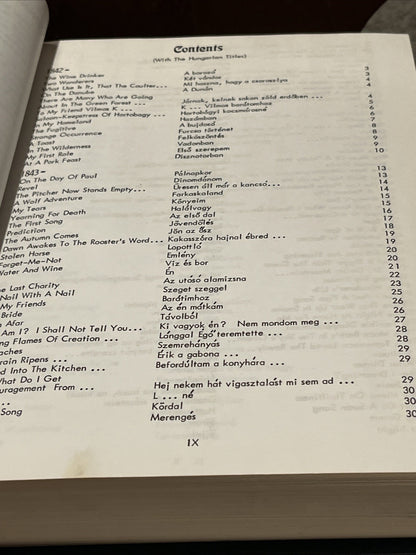 Contents
(With The Hungarian Titles)
1842 –
The Wine Drinker A borozó 3
Two Wanderers Két vándor 3
What Use Is It, That The Coulter... Mi haszna, hogy a csoroszlya 4
On The Danube A Dunán 4
There Are Many Who Are Going
About In The Green Forest ... Járnak, kelnek sokan zöld erdőben ... 4
To My Friend Vilmos K ... K ... Vilmos barátomhoz 5
Saloon-Keepstress of Hortobagy ... Hortobágyi kocsmárosné 6
In My Homeland Hazámban 6
The Fugitive A bujdosó
Strange Occurrence Furcsa történet 8
A Toast Felköszöntés 8
In The Wilderness Vadonban 8
My First Role Első szerepem 9
At A Pork Feast Disznótorban 10
1843 –
On The Day Of Paul Pálnapkor 13
Revel Dinomdánom 13
The Pitcher Now Stands Empty... Üresen áll már a kancsó... 14
A Wolf Adventure Farkaskaland 14
My Tears Könyeim 15
Yearning For Death Halálvágy 15
The First Song Az első dal 16
Prediction Jövendölés 17
The Autumn Comes Jön az ősz 18
Dawn Awakes To The Rooster's Word... Kakasszóra hajnal ébred ... 19
Stolen Horse Lopottló 20
Forget-Me-Not Emlény 20
Water And Wine Víz és bor 21
Én
The Last Charity Az utósó alamizsna 22
Nail With A Nail Szeget szeggel 23
My Friends Barátimhoz 25
Bride Az én mátkám 26
Afar Távolból 26
Am I? I Shall Not Tell You... Ki vagyok én? Nem mondom meg ... 27
ng Flames Of Creation ... Lánggal Égő teremtette ... 28
aches Szemrehányás 28
rain Ripens ... Érik a gabona ... 29
d Into The Kitchen ... Befordúltam a konyhára ...
What Do I Get
uragement From ... Hej nekem hát vigasztalást mi sem ad ... 29
... L ... né 30
.. Kördal 30
Song Merengés 30
IX